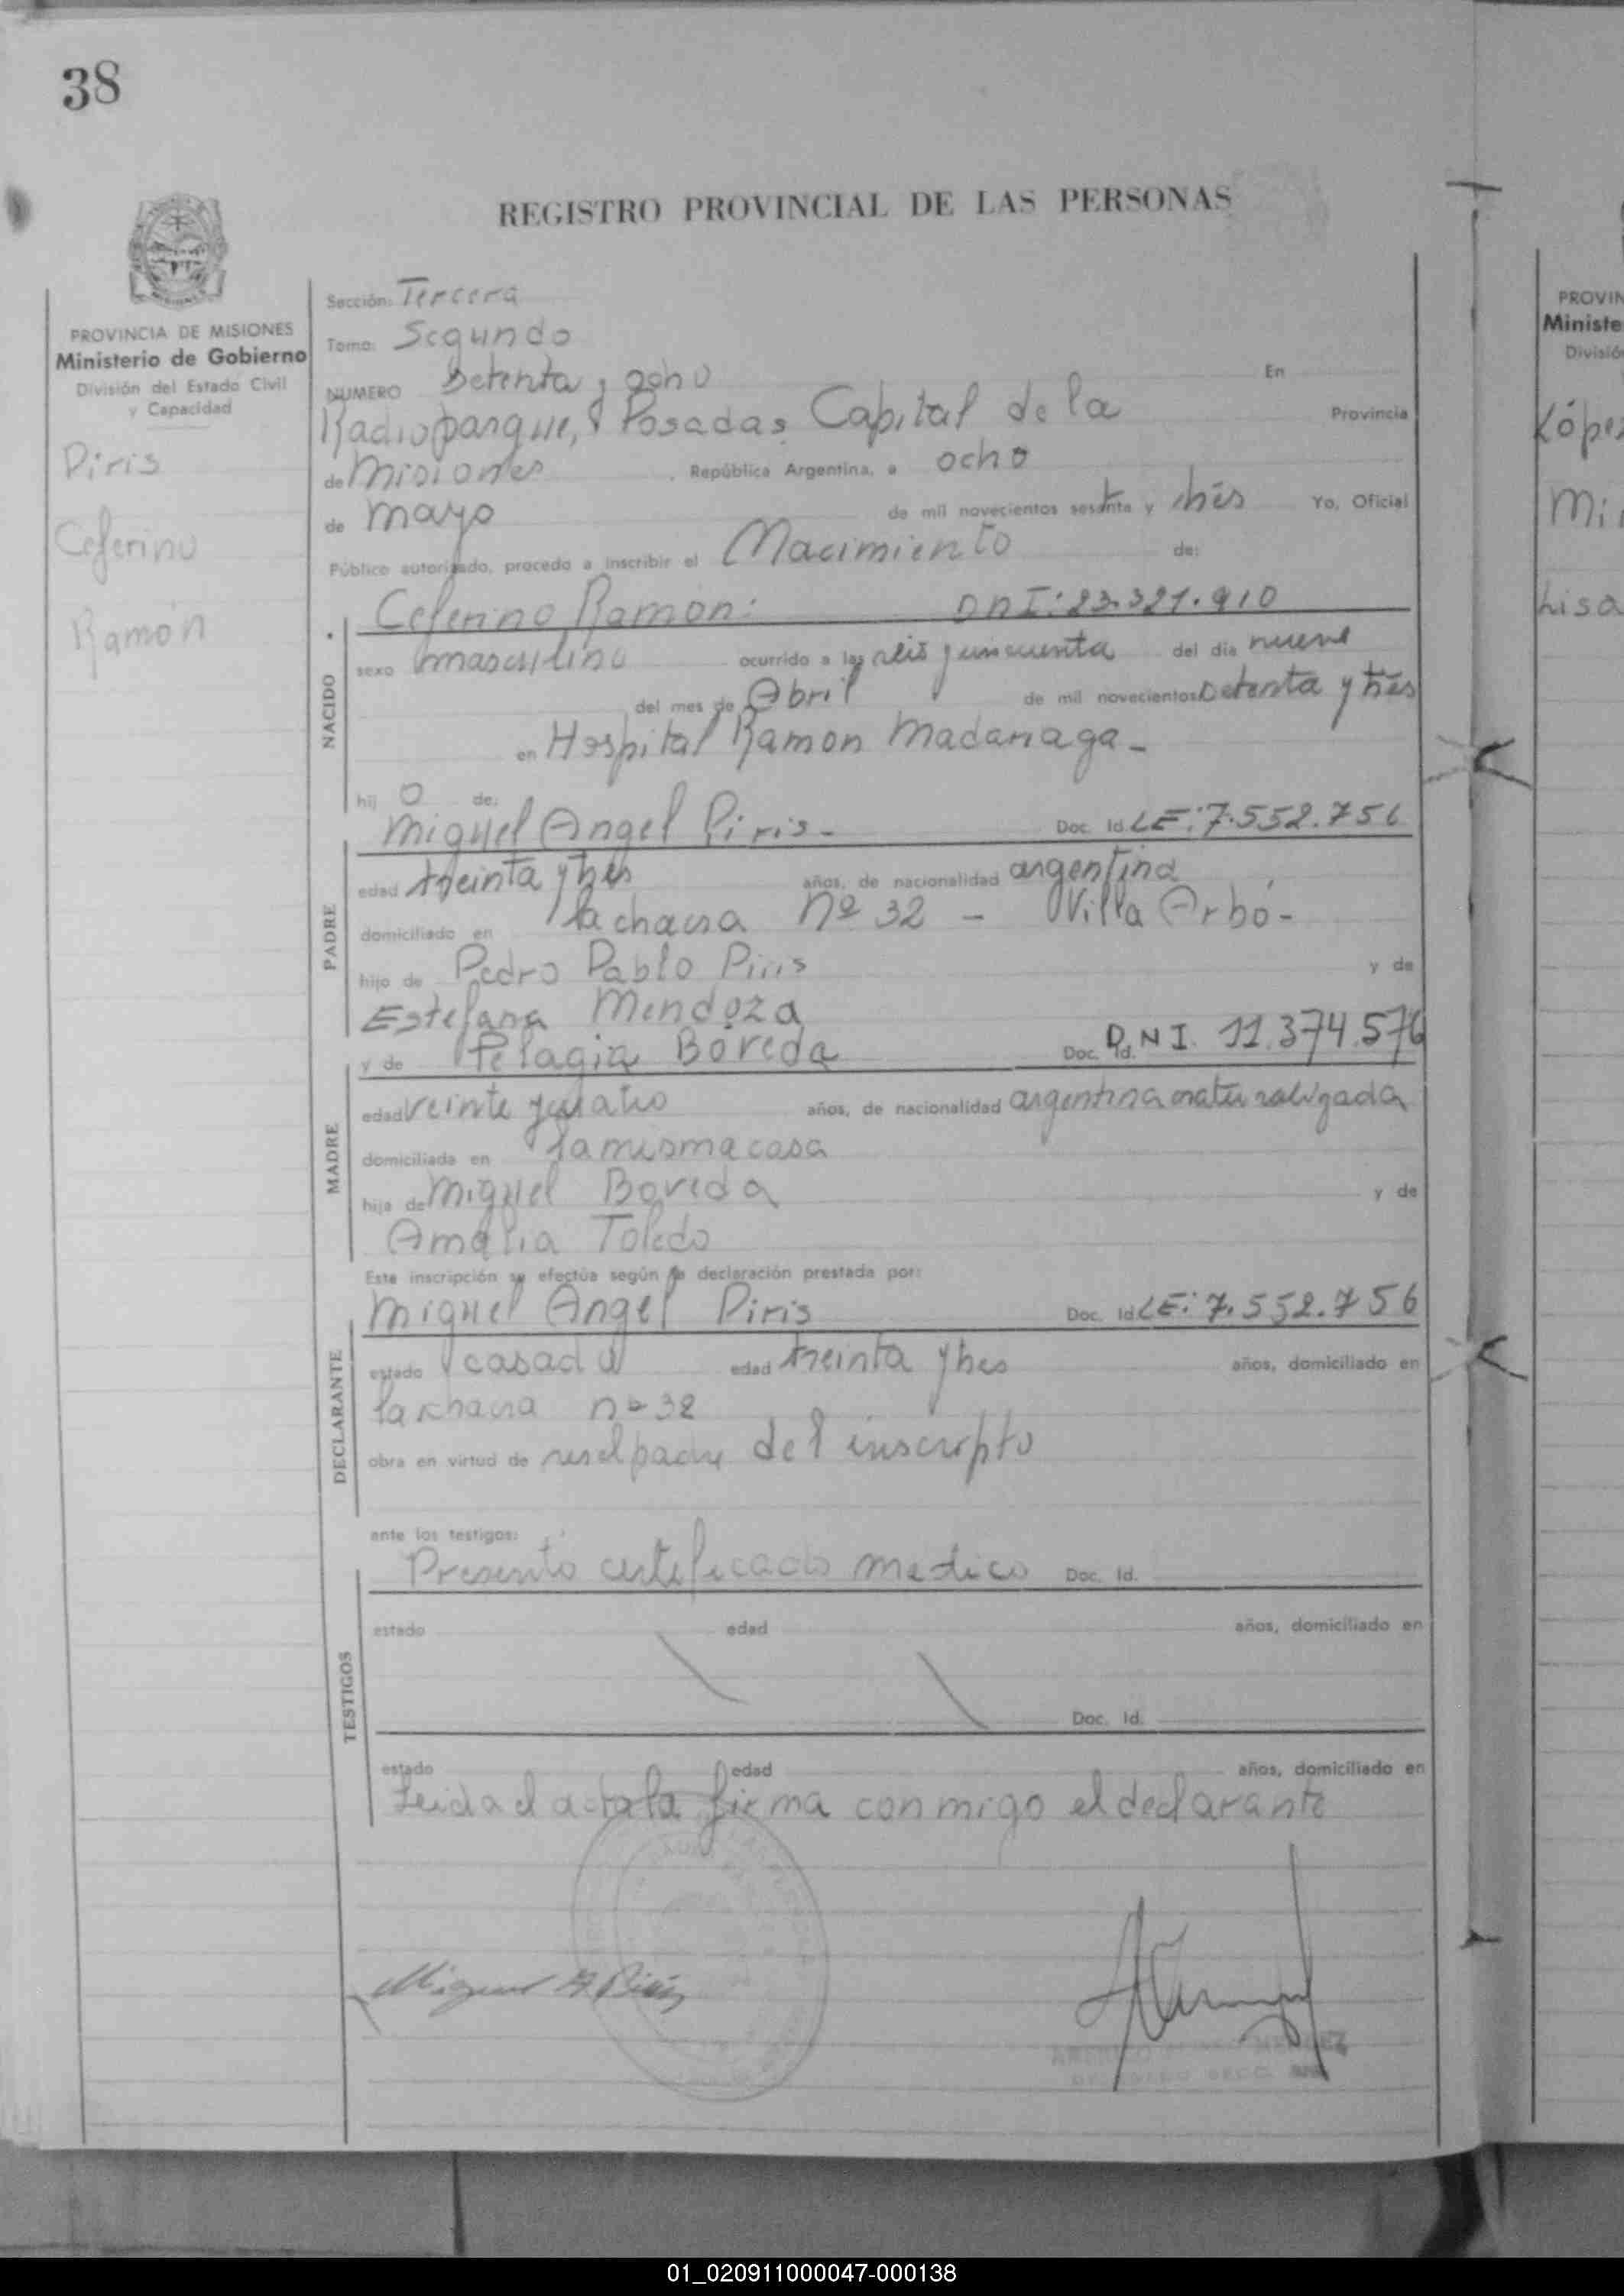 38
REGISTRO PROVINCIAL DE LAS PERSONAS
PROVINCIA DE MISIONES
Ministerio de Gobierno
División del Estado Civil
y Capacidad
Piris
Ceferino
Ramón
Sección: Tercera
Tomo: Segundo
NUMERO Setenta y ocho En
Radioparque, Posadas Capital de la Provincia
de Misiones, República Argentina, a ocho
de mayo de mil novecientos setenta y trés Yo, Oficial
Público autorizado, procedo a inscribir el Nacimiento de:
NACIDO
Ceferino Ramón: DNI: 23.321.910
sexo masculino ocurrido a las seis y cincuenta del día nueve
del mes de Abril de mil novecientos setenta y trés
en Hospital Ramon Madariaga -
hijo de:
PADRE
Miguel Angel Piris - Doc. Id. LE: 7.552.756
edad treinta y tres años, de nacionalidad argentina
domiciliado en la chacra nº 32 - Villa Arbó -
hijo de Pedro Pablo Piris y de
Estefana Mendoza
MADRE
y de Pelagia Boveda Doc. Id. DNI. 11.374.576
edad veinte y cuatro años, de nacionalidad argentina naturalizada
domiciliada en la misma casa
hija de Miguel Boveda y de
Amalia Toledo
Esta inscripción se efectúa según la declaración prestada por:
DECLARANTE
Miguel Angel Piris Doc. Id. LE: 7.552.756
estado casado edad treinta y tres años, domiciliado en
la chacra nº 32
obra en virtud de ser el padre del inscripto
ante los testigos:
TESTIGOS
Presentó certificado medico Doc. Id.
estado edad años, domiciliado en
Doc. Id.
estado edad años, domiciliado en
Leida el acta la firma conmigo el declarante
Miguel A Piris
PROVIN
Ministe
Divisió
Lópe
Mi
Lisa
01_020911000047-000138